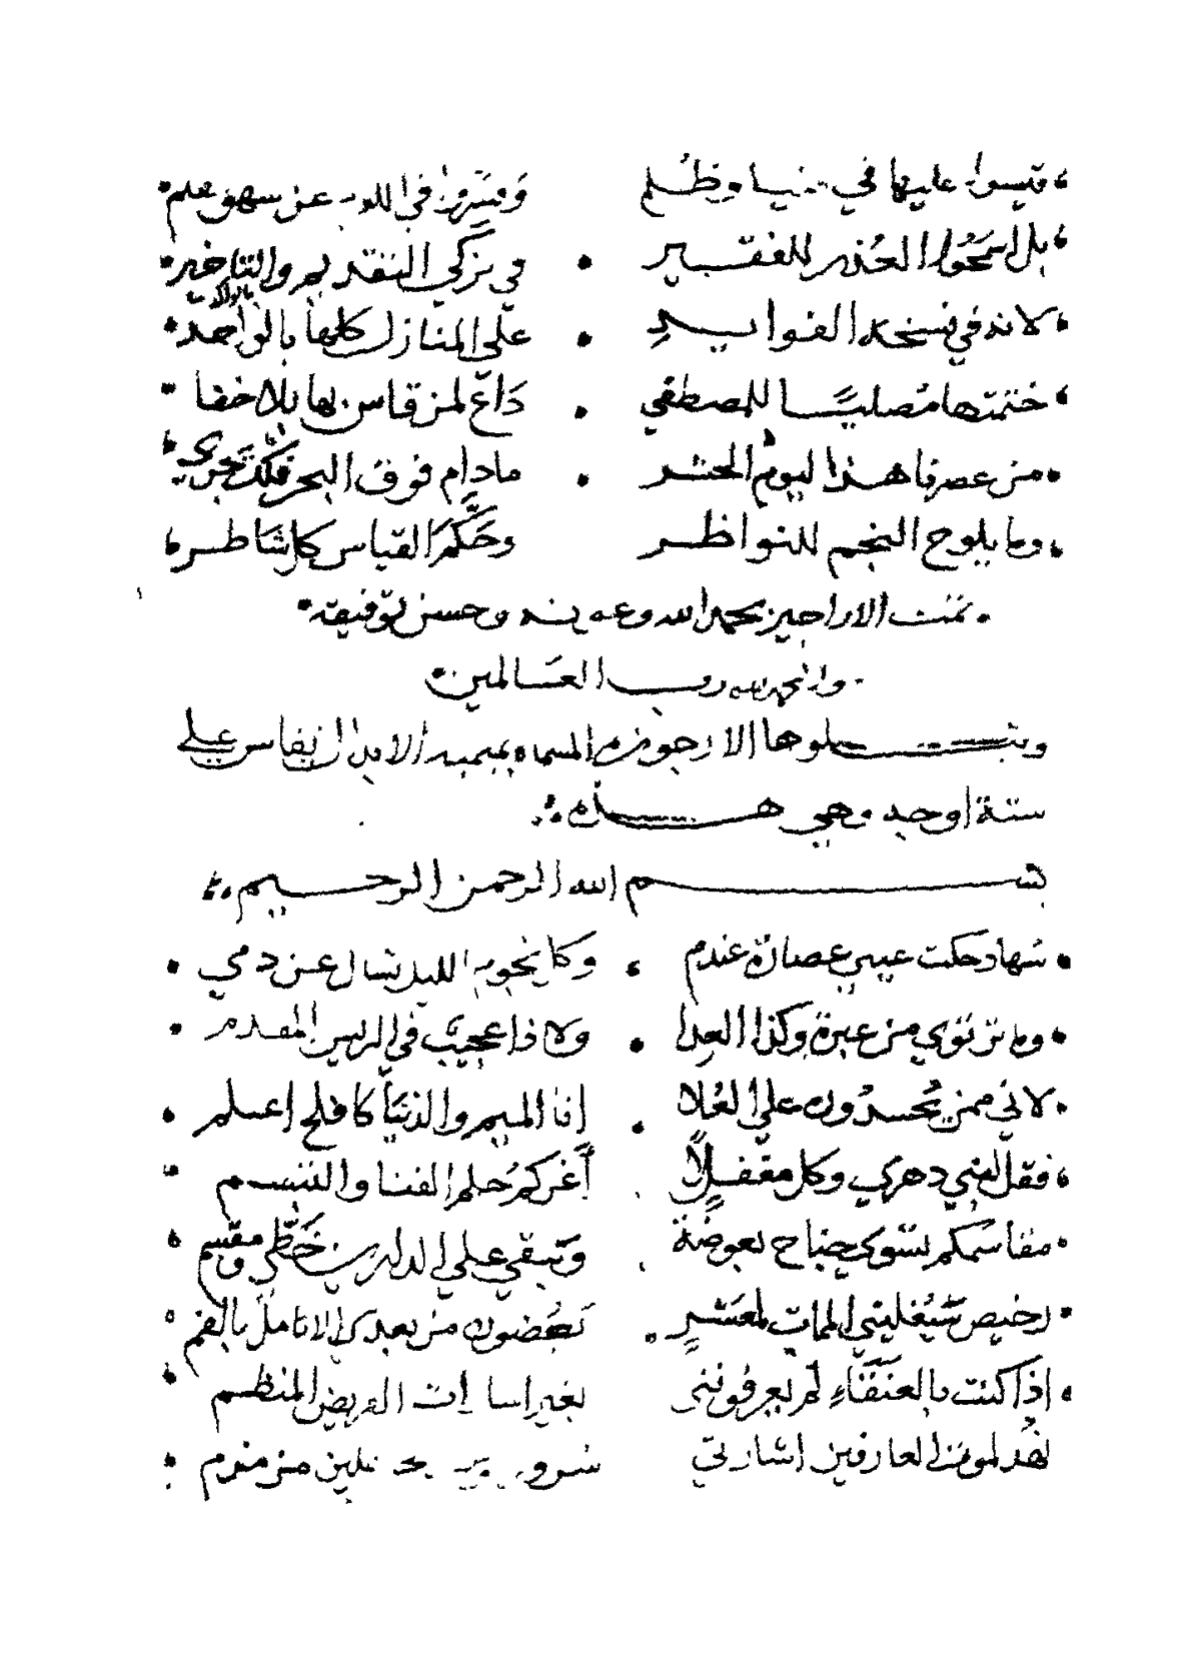 قيسوا عليها في ضيا وظلم وميزوا في اللوب عن سهو علم
بل اسمحوا العذر للفقير في تزكي التقديم والتاخير
لانه في نسخة الفوايد على المنازل كلها بالواحد
ختمتها مصليًا للمصطفي داع لمن قاس بها بلا خفا
من عصرنا هذا ليوم الحشر مادام فوق البحر فلك تجري
وما يلوح النجم للنواظر وحكم القياس كل شاطر
تمت الاراجيز بحمد الله وعونه وحسن توفيقه
والحمد لله رب العالمين
ويتلوها الارجوزة المسماه بميمية الابدال نفاس علي
ستة اوجه وهي هذه
بسم الله الرحمن الرحيم
سهاد حكت عيني عصارة عندم وكل نجوم الليل تسال عن دمي
وما ترتوي من عبرة وكذا العدا ولا ذا عجيب في الرييس المقدم
لاني ممن يحسدون على العلا انا الميم والدنيا كافلح اعلم
فقل لبني دهري وكل مغفل أغركم حلم الفنا والتبسم
مقاسمكم يسوى جناح بعوضة وتبقي علي الدارين خطي ومقسم
رخيص ستغليني الممات لمعشر تعضون من بعدي الانامل بالفم
اذا كنت بالعنقاء لم يعرفونني بغير اسارات القريض المنظم
العارفين اشارتي من مغرم